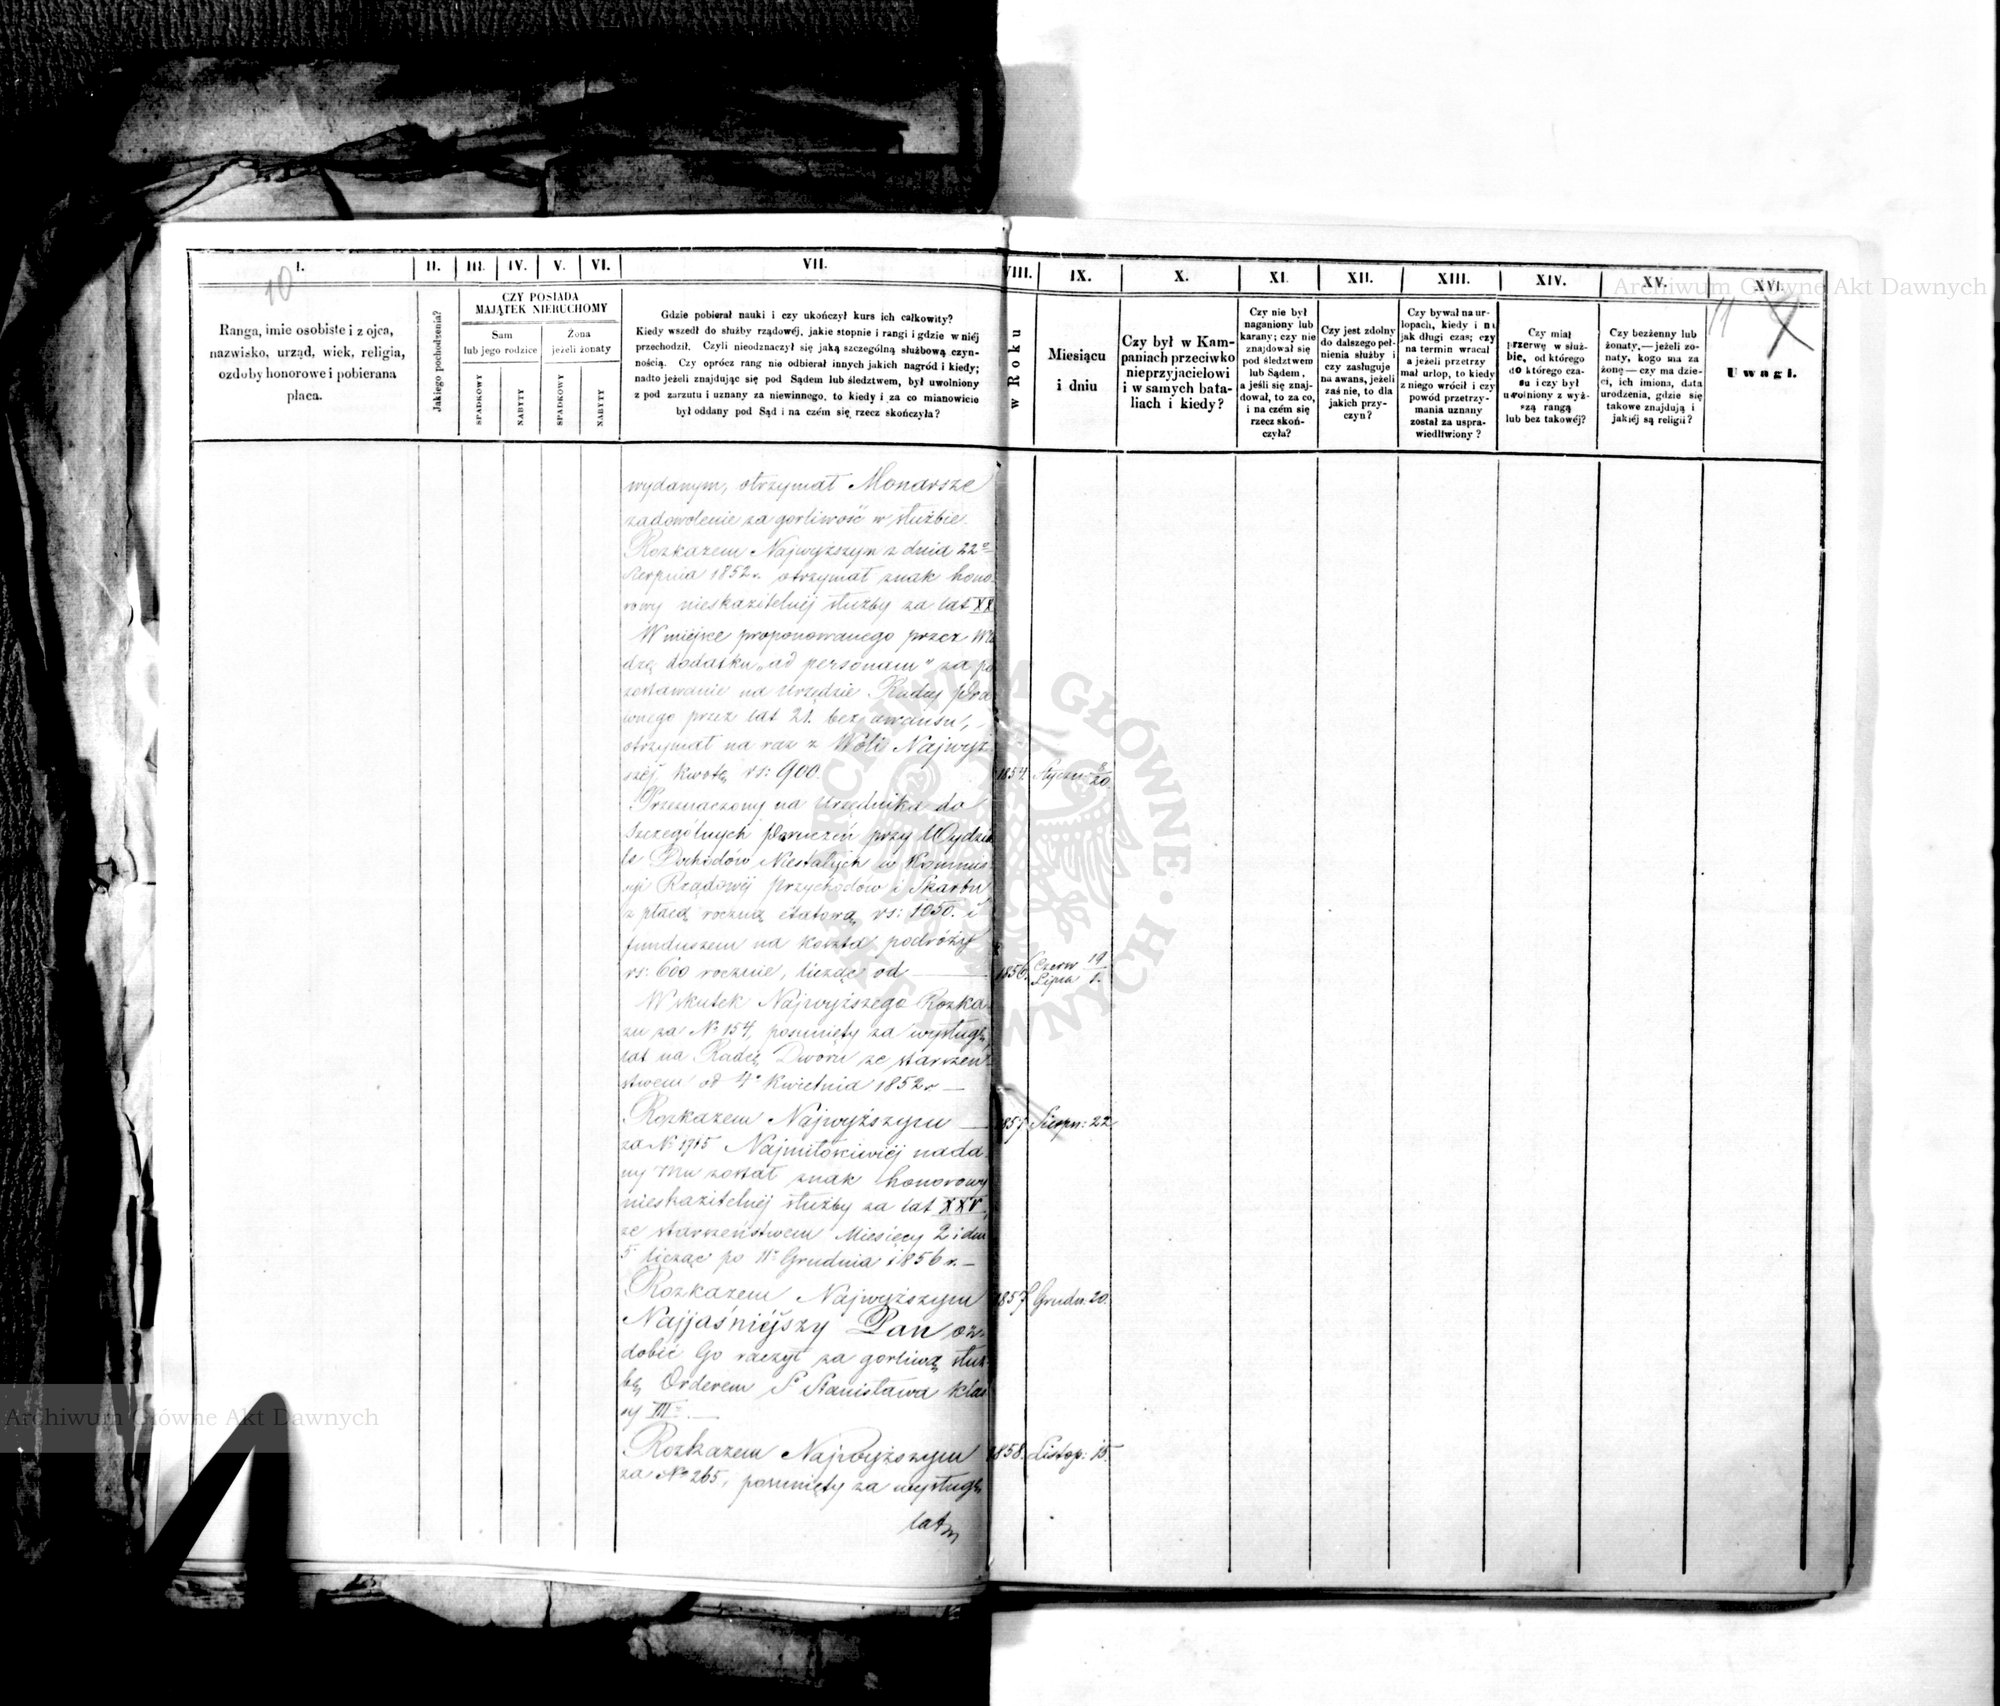 I. II. III. IV. V. VI. VII. VIII. IX. X. XI. XII. XIII. XIV. XV. XVI.
10
11
Ranga, imie osobiste i z ojca,
nazwisko, urząd, wiek, religia,
ozdoby honorowe i pobierana
płaca.
Jakiego pochodzenia?
CZY POSIADA
MAJĄTEK NIERUCHOMY
Sam
lub jego rodzice
Żona
jeżeli żonaty
SPADKOWY
NABYTY
SPADKOWY
NABYTY
Gdzie pobierał nauki i czy ukończył kurs ich całkowity?
Kiedy wszedł do służby rządowéj, jakie stopnie i rangi i gdzie w niéj
przechodził. Czyli nieodznaczył się jaką szczególną służbową czyn-
nością. Czy oprócz rang nie odbierał innych jakich nagród i kiedy;
nadto jeżeli znajdując się pod Sądem lub śledztwem, był uwolniony
z pod zarzutu i uznany za niewinnego, to kiedy i za co mianowicie
był oddany pod Sąd i na czém się rzecz skończyła?
w Roku
Miesiącu
i dniu
Czy był w Kam-
paniach przeciwko
nieprzyjacielowi
i w samych bata-
liach i kiedy?
Czy nie był
naganiony lub
karany; czy nie
znajdował się
pod śledztwem
lub Sądem,
a jeśli się znaj-
dował, to za co,
i na czém się
rzecz skoń-
czyła?
Czy jest zdolny
do dalszego peł-
nienia służby i
czy zasługuje
na awans, jeżeli
zaś nie, to dla
jakich przy-
czyn?
Czy bywał na ur-
lopach, kiedy i na
jak długi czas; czy
na termin wracał
a jeżeli przetrzy-
mał urlop, to kiedy
z niego wrócił i czy
powód przetrzy-
mania uznany
został za uspra-
wiedliwiony?
Czy miał
przerwę w służ-
bie, od którego
do którego cza-
su i czy był
uwolniony z wyż-
szą rangą
lub bez takowéj?
Czy bezżenny lub
żonaty,—jeżeli żo-
naty, kogo ma za
żonę—czy ma dzie-
ci, ich imiona, data
urodzenia, gdzie się
takowe znajdują i
jakiéj są religii?
Uwagi.
wydanym, otrzymał Monarsze
zadowolenie za gorliwość w służbie.
Rozkazem Najwyższym z dnia 22º
Sierpnia 1852 r. otrzymał znak hono-
rowy nieskazitelnéj służby za lat XX
W miejsce proponowanego przez Wła
dzę dodatku „ad personam" za po
zostawanie na urzędzie Radcy Pra
wnego przez lat 21. bez awansu,
otrzymał na raz z Woli Najwyż
széj, kwotę rs: 900. 1854. Styczn: 8/20
Przeznaczony na Urzędnika do
Szczególnych Poruczeń przy Wydzia
le Dochodów Niestałych w Kommis
syi Rządowéj Przychodów i Skarbu
z płacą roczną etatową rs: 1050. i
funduszem na koszta podróży
rs: 600 rocznie, licząc od — 1856. Czerw 19 / Lipca 1.
Wskutek Najwyższego Rozka-
zu za Nº 154, posunięty za wysługę
lat na Radcę Dworu ze starszeń-
stwem od 4º Kwietnia 1852 r. —
Rozkazem Najwyższym — 1857 Sierpn: 22
za Nº 1715 Najmiłościwiéj nada-
ny Mu został znak honorowy
nieskazitelnéj służby za lat XXV,
ze starszeństwem Miesięcy 2 i dni
5 licząc po 11º Grudnia 1856 r. —
Rozkazem Najwyższym 1857 Grudn. 20.
Najjaśniéjszy Pan oz-
dobić Go raczył za gorliwą służ-
bę, Orderem Sº Stanisława klas
sy III. —
Rozkazem Najwyższym 1858. Listop: 15.
za Nº 265, posunięty za wysługę
lat
Archiwum Główne Akt Dawnych
Archiwum Główne Akt Dawnych
ARCHIWUM GŁÓWNE AKT DAWNYCH